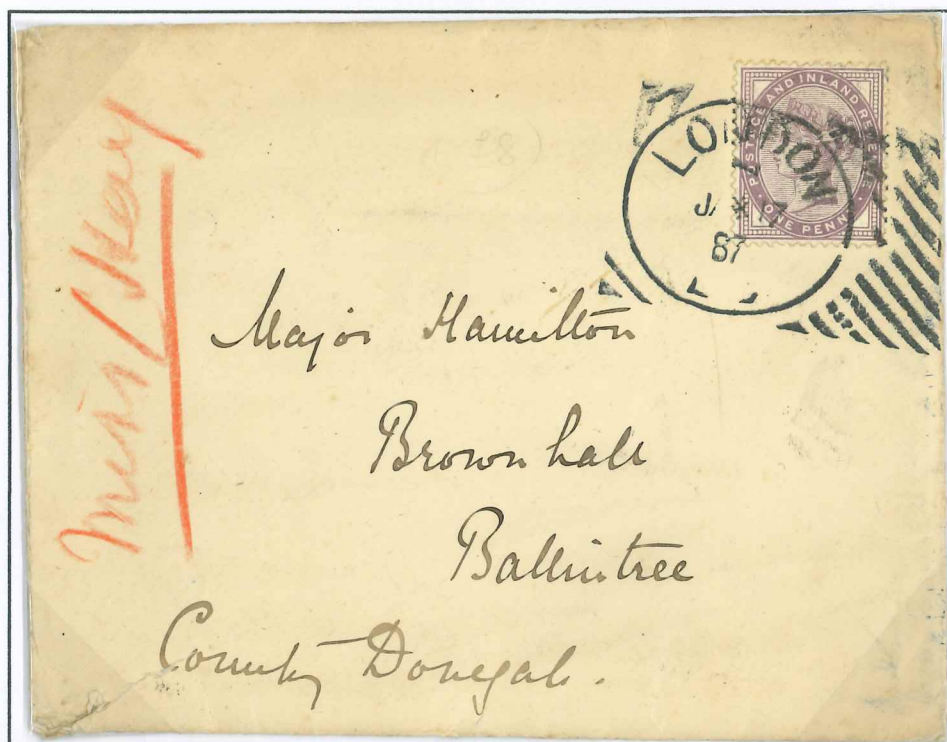 POSTAGE AND INLAND REVENUE
ONE PENNY
LONDON
JA
87
Major Hamilton
Brown hall
Ballintree
County Donegal.